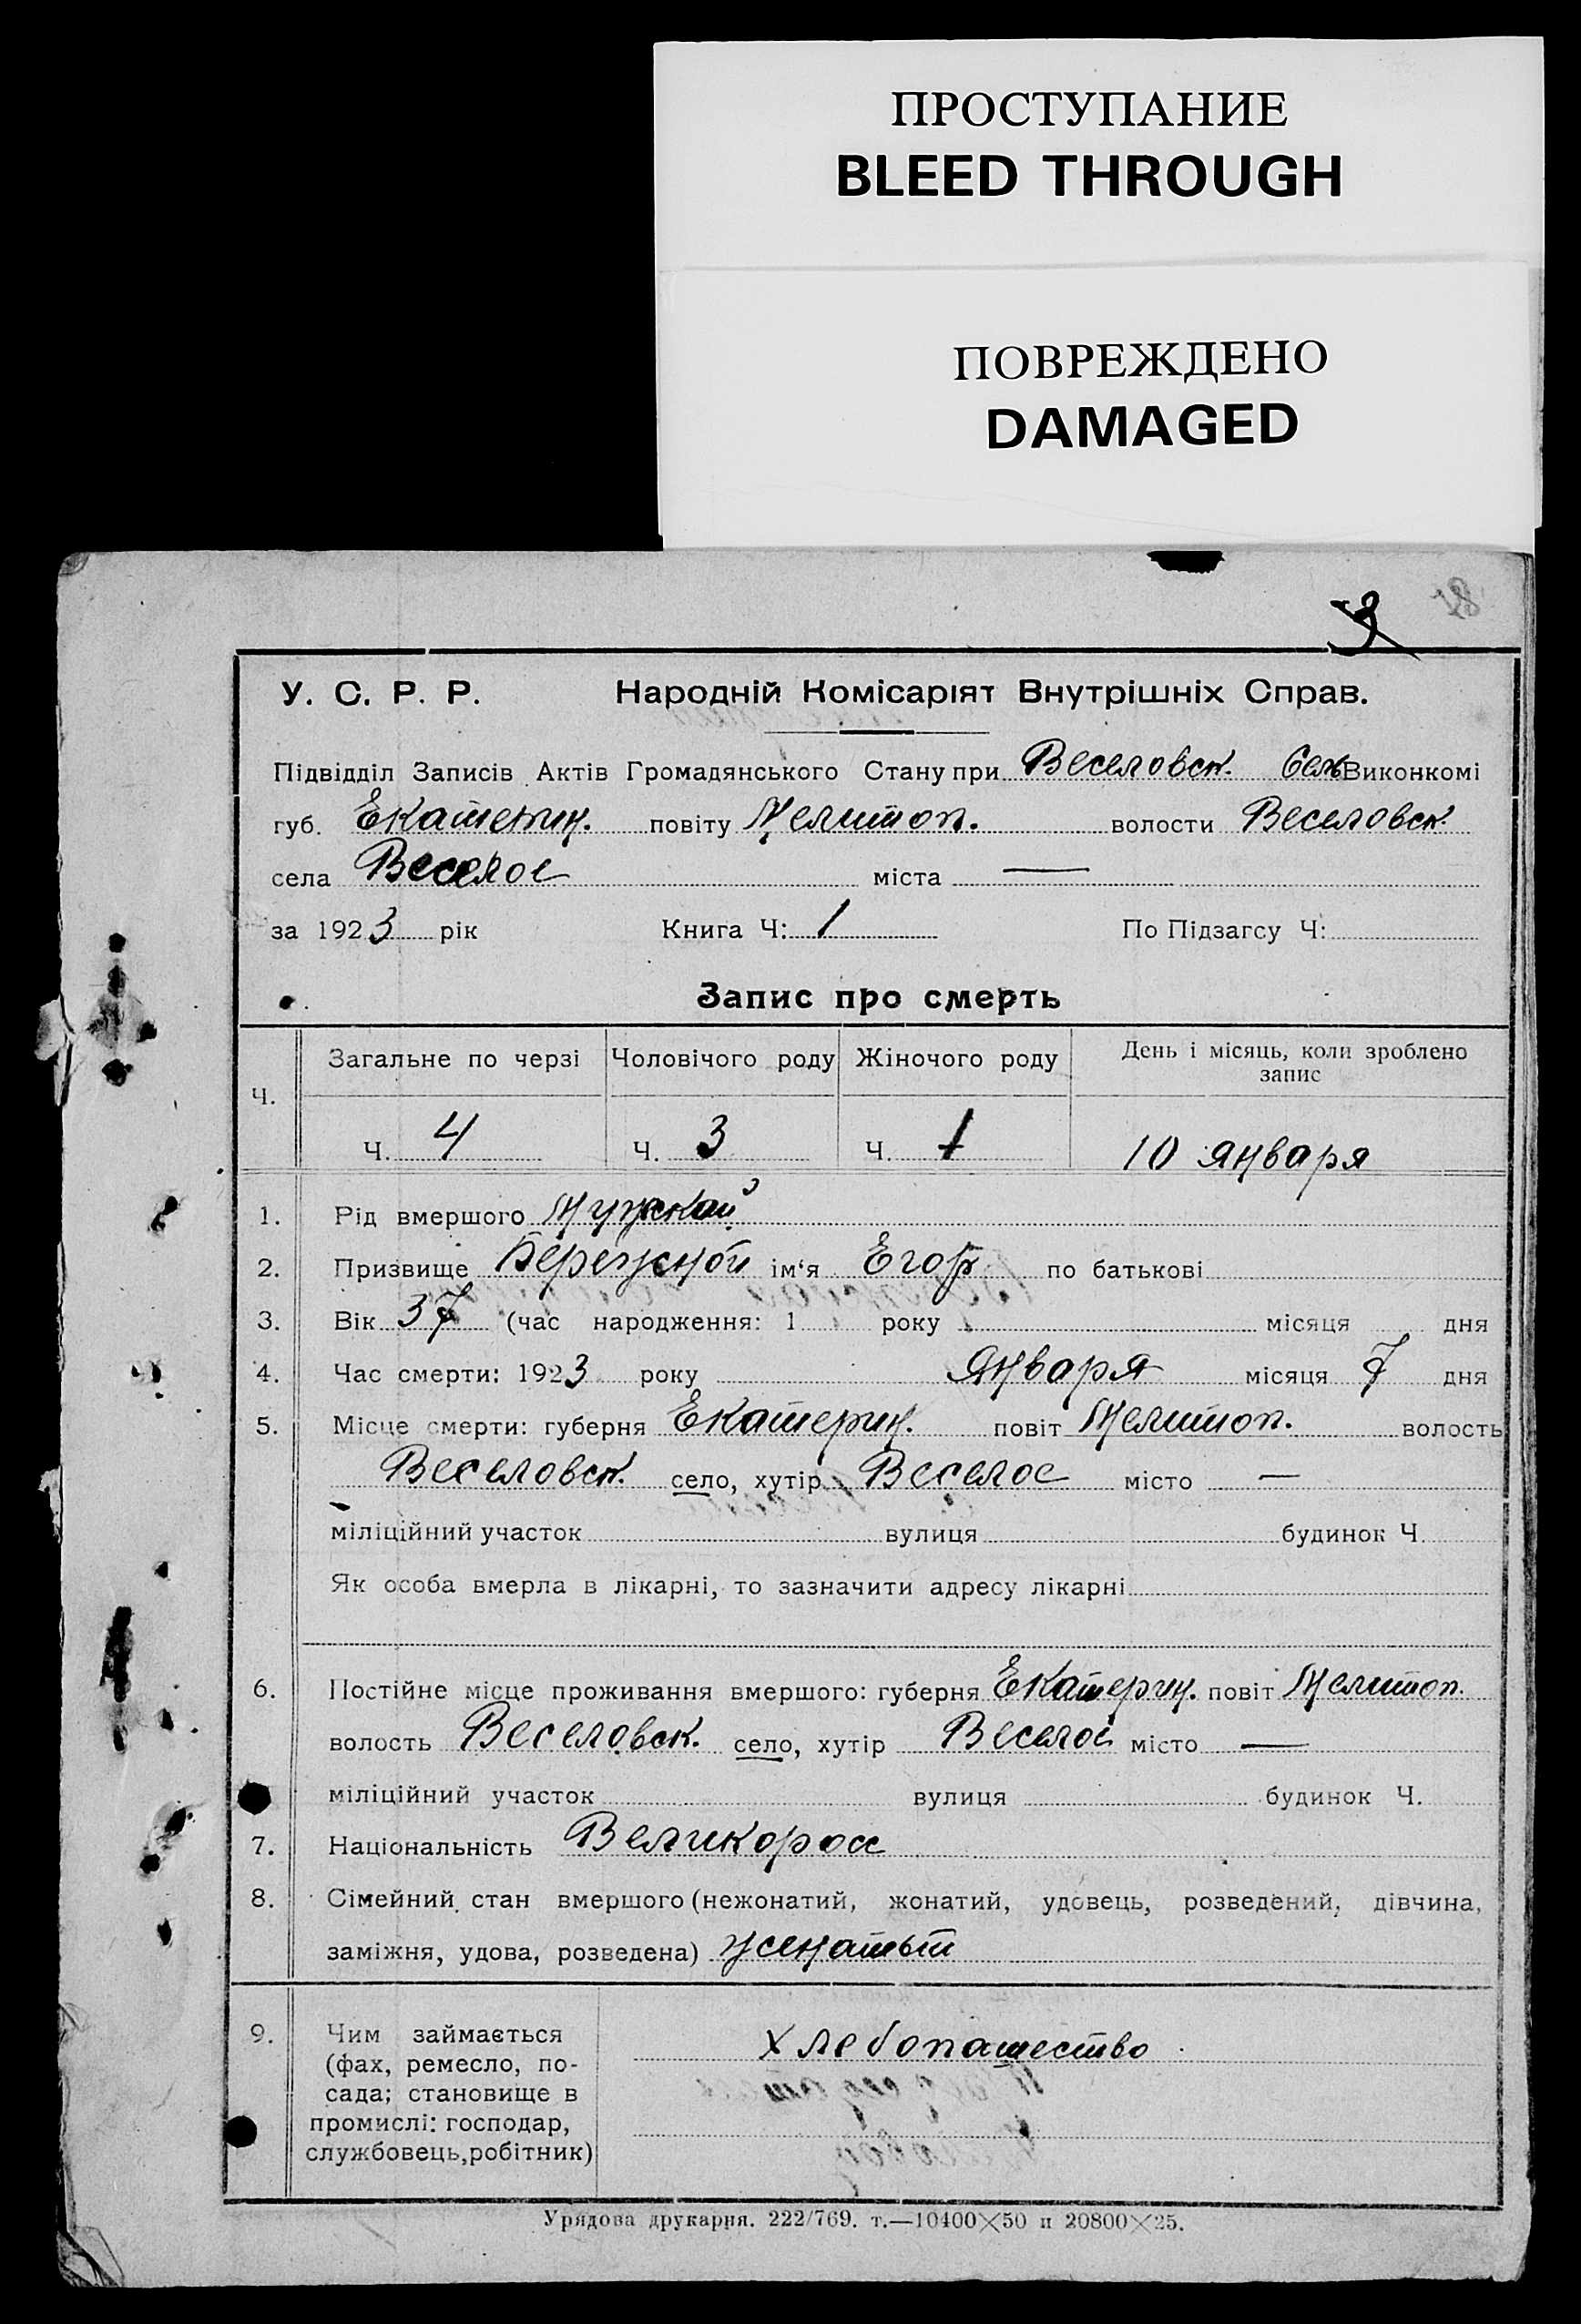 ПРОСТУПАНИЕ
BLEED THROUGH
ПОВРЕЖДЕНО
DAMAGED
3
У. С. Р. Р. Народній Комісаріят Внутрішніх Справ.
Підвідділ Записів Актів Громадянського Стану при Веселовск. Сель Виконкомі
губ. Екатерин. повіту Мелитоп. волости Веселовск.
села Веселое міста —
за 1923 рік Книга Ч: 1 По Підзагсу Ч:
Запис про смерть
Ч. Загальне по черзі Чоловічого роду Жіночого роду День і місяць, коли зроблено запис
Ч. 4 Ч. 3 Ч. 1 10 января
1. Рід вмершого Мужской
2. Призвище Бережной ім‘я Егор по батькові
3. Вік 37 (час народження: 1 року місяця дня
4. Час смерти: 1923 року Января місяця 7 дня
5. Місце смерти: губерня Екатерин. повіт Мелитоп. волость
Веселовск. село, хутір Веселое місто —
міліційний участок вулиця будинок Ч.
Як особа вмерла в лікарні, то зазначити адресу лікарні
6. Постійне місце проживання вмершого: губерня Екатерин. повіт Мелитоп.
волость Веселовск. село, хутір Веселое місто —
міліційний участок вулиця будинок Ч.
7. Національність Великоросс
8. Сімейний стан вмершого (нежонатий, жонатий, удовець, розведений, дівчина,
заміжня, удова, розведена) женатый
9. Чим займається Хлебопашество
(фах, ремесло, по-
сада; становище в
промислі: господар,
службовець, робітник)
Урядова друкарня. 222/769. т.—10400×50 п 20800×25.